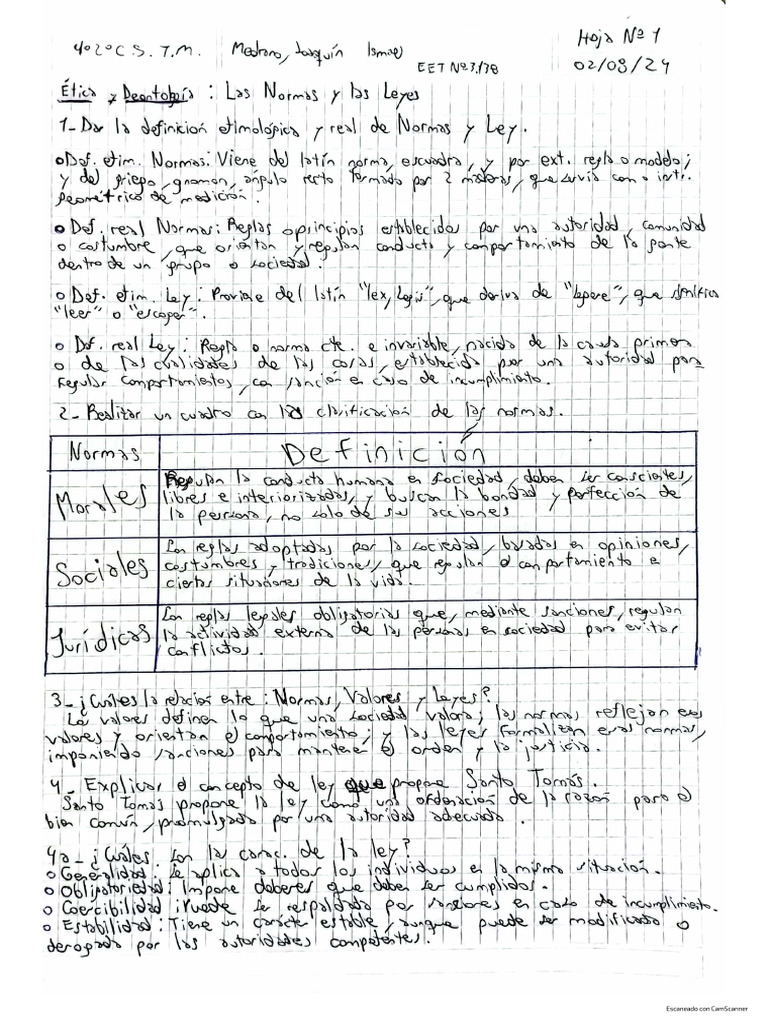 4º2ºC S. T.M. Medrano, Joaquín Ismael EET Nº3138 Hoja Nº 1
02/08/24
Ética y Deontología : Las Normas y las Leyes
1- Dar la definición etimológica y real de Normas y Ley.
• Def. etim. Normas: Viene del latín norma, escuadra, y por ext. regla o modelo;
y del griego, gnomon, ángulo recto formado por 2 maderas, que servía como instr.
geométrico de medición.
• Def. real Normas: Reglas o principios establecidos por una autoridad, comunidad
o costumbre, que orientan y regulan conducta y comportamiento de la gente
dentro de un grupo o sociedad.
• Def. etim. Ley: Proviene del latín "lex, Legis", que deriva de "legere", que significa
"leer" o "escoger".
• Def. real Ley: Regla o norma cte. e invariable, nacida de la causa primera
o de las cualidades de las cosas, establecida por una autoridad para
regular comportamientos, con sanción en caso de incumplimiento.
2- Realizar un cuadro con la clasificación de las normas.
Normas Definición
Morales Regulan la conducta humana en sociedad, deben ser conscientes,
libres e interiorizadas, y buscan la bondad y perfección de
la persona, no solo de sus acciones
Sociales Son reglas adoptadas por la sociedad, basadas en opiniones,
costumbres y tradiciones, que regulan el comportamiento en
ciertas situaciones de la vida.
Jurídicas Son reglas legales obligatorias que, mediante sanciones, regulan
la actividad externa de las personas en sociedad para evitar
conflictos.
3- ¿Cuál es la relación entre: Normas, Valores y Leyes?
Los valores definen lo que una sociedad valora; las normas reflejan esos
valores y orientan el comportamiento; y las leyes formalizan esas normas,
imponiendo sanciones para mantener el orden y la justicia.
4- Explicar el concepto de ley que propone Santo Tomás.
Santo Tomás propone la ley como una ordenación de la razón para el
bien común, promulgada por una autoridad adecuada.
4a- ¿Cuáles son las carac. de la ley?
• Generalidad: Se aplica a todos los individuos en la misma situación.
• Obligatoriedad: Impone deberes que deben ser cumplidos.
• Coercibilidad: Puede ser respaldada por sanciones en caso de incumplimiento.
• Estabilidad: Tiene un carácter estable, aunque puede ser modificada o
derogada por las autoridades competentes.
Escaneado con CamScanner